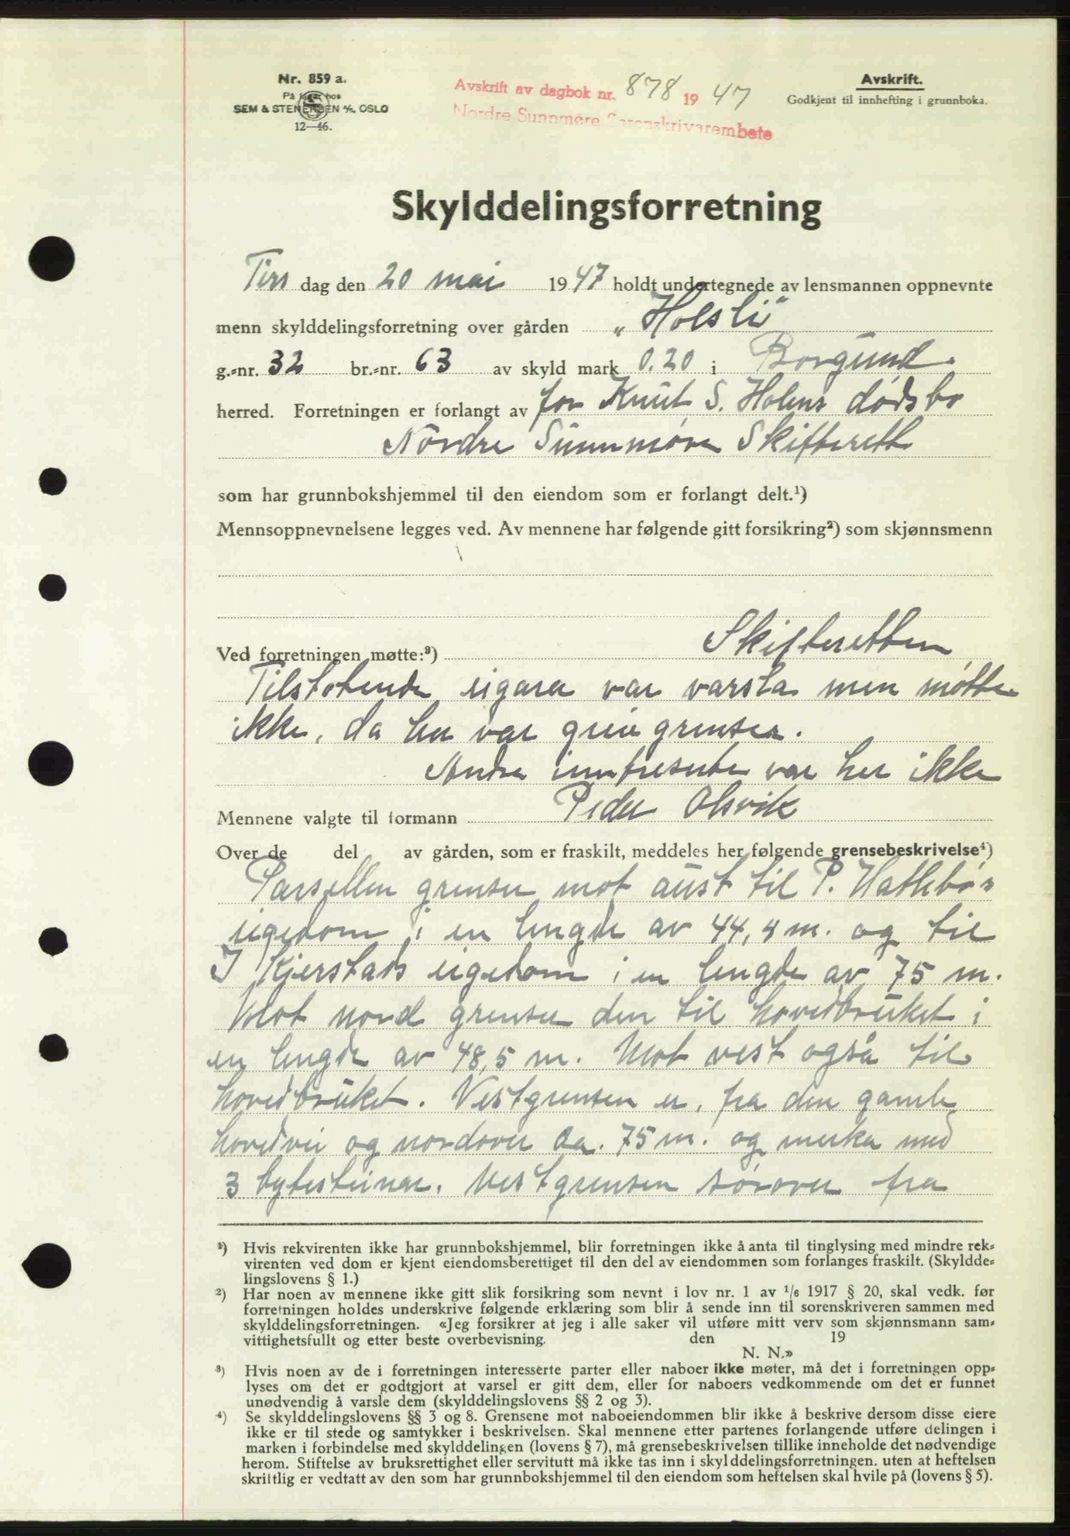 Nr. 859 a.
På lager hos
SEM & STENERSEN A/S, OSLO
12—46.
Avskrift av dagbok nr. 878 19 47
Nordre Sunnmøre Sorenskrivarembete
Avskrift.
Godkjent til innhefting i grunnboka.
Skylddelingsforretning
Tirs dag den 20 mai 1947 holdt undertegnede av lensmannen oppnevnte
menn skylddelingsforretning over gården „Holsli"
g.-nr. 32 br.-nr. 63 av skyld mark 0.20 i Borgund
herred. Forretningen er forlangt av for Knut S. Holens dødsbo
Nordre Sunnmøre Skifterett
som har grunnbokshjemmel til den eiendom som er forlangt delt.¹)
Mennsoppnevnelsene legges ved. Av mennene har følgende gitt forsikring²) som skjønnsmenn
Ved forretningen møtte:³) Skifteretten
Tilstøtende eigara var varsla men møtte
ikke, da her var greie grenser.
Andre interesserte var her ikke
Mennene valgte til formann Peder Olsvik
Over de del av gården, som er fraskilt, meddeles her følgende grensebeskrivelse⁴)
Parsellen grenser mot aust til P. Hatlebø's
eigedom i en lengde av 44,4 m. og til
J Kjerstads eigedom i en lengde av 75 m.
Mot nord grenser den til hovedbruket i
en lengde av 48,5 m. Mot vest også til
hovedbruket. Vestgrensen er, fra den gamle
hovedvei og nordover ca. 75 m. og merka med
3 bytesteinar. Vestgrensen sørover fra
¹) Hvis rekvirenten ikke har grunnbokshjemmel, blir forretningen ikke å anta til tinglysing med mindre rek-
virenten ved dom er kjent eiendomsberettiget til den del av eiendommen som forlanges fraskilt. (Skyldde-
lingslovens § 1.)
²) Har noen av mennene ikke gitt slik forsikring som nevnt i lov nr. 1 av 1/6 1917 § 20, skal vedk. før
forretningen holdes underskrive følgende erklæring som blir å sende inn til sorenskriveren sammen med
skylddelingsforretningen. «Jeg forsikrer at jeg i alle saker vil utføre mitt verv som skjønnsmann sam-
vittighetsfullt og etter beste overbevisning. den 19
N. N.»
³) Hvis noen av de i forretningen interesserte parter eller naboer ikke møter, må det i forretningen opp-
lyses om det er godtgjort at varsel er gitt dem, eller for naboers vedkommende om det er funnet
unødvendig å varsle dem (skylddelingslovens §§ 2 og 3).
⁴) Se skylddelingslovens §§ 3 og 8. Grensene mot naboeiendommen blir ikke å beskrive dersom disse eiere
ikke er til stede og samtykker i beskrivelsen. Skal mennene etter partenes forlangende utføre delingen i
marken i forbindelse med skylddelingen (lovens § 7), må grensebeskrivelsen tillike inneholde det nødvendige
herom. Stiftelse av bruksrettighet eller servitutt må ikke tas inn i skylddelingsforretningen. uten at heftelsen
skriftlig er vedtatt av den som har grunnbokshjemmel til den eiendom som heftelsen skal hvile på (lovens § 5).